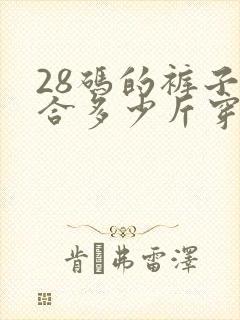 28碼的裤子
合多少斤穿
肯 弗雷澤